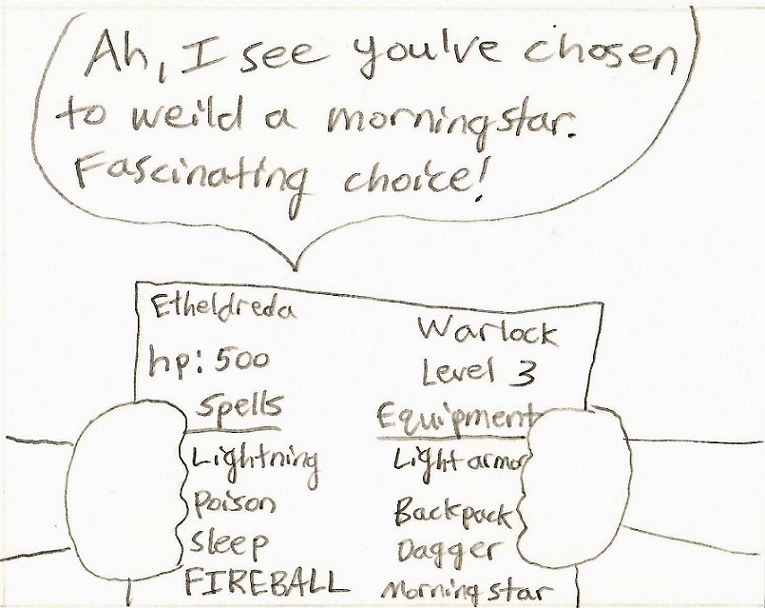 Ah, I see you've chosen
to weild a morningstar.
Fascinating choice!
Etheldreda
Warlock
hp: 500
Level 3
Spells
Equipment
Lightning
Light armor
Poison
Backpack
Sleep
Dagger
FIREBALL
Morningstar